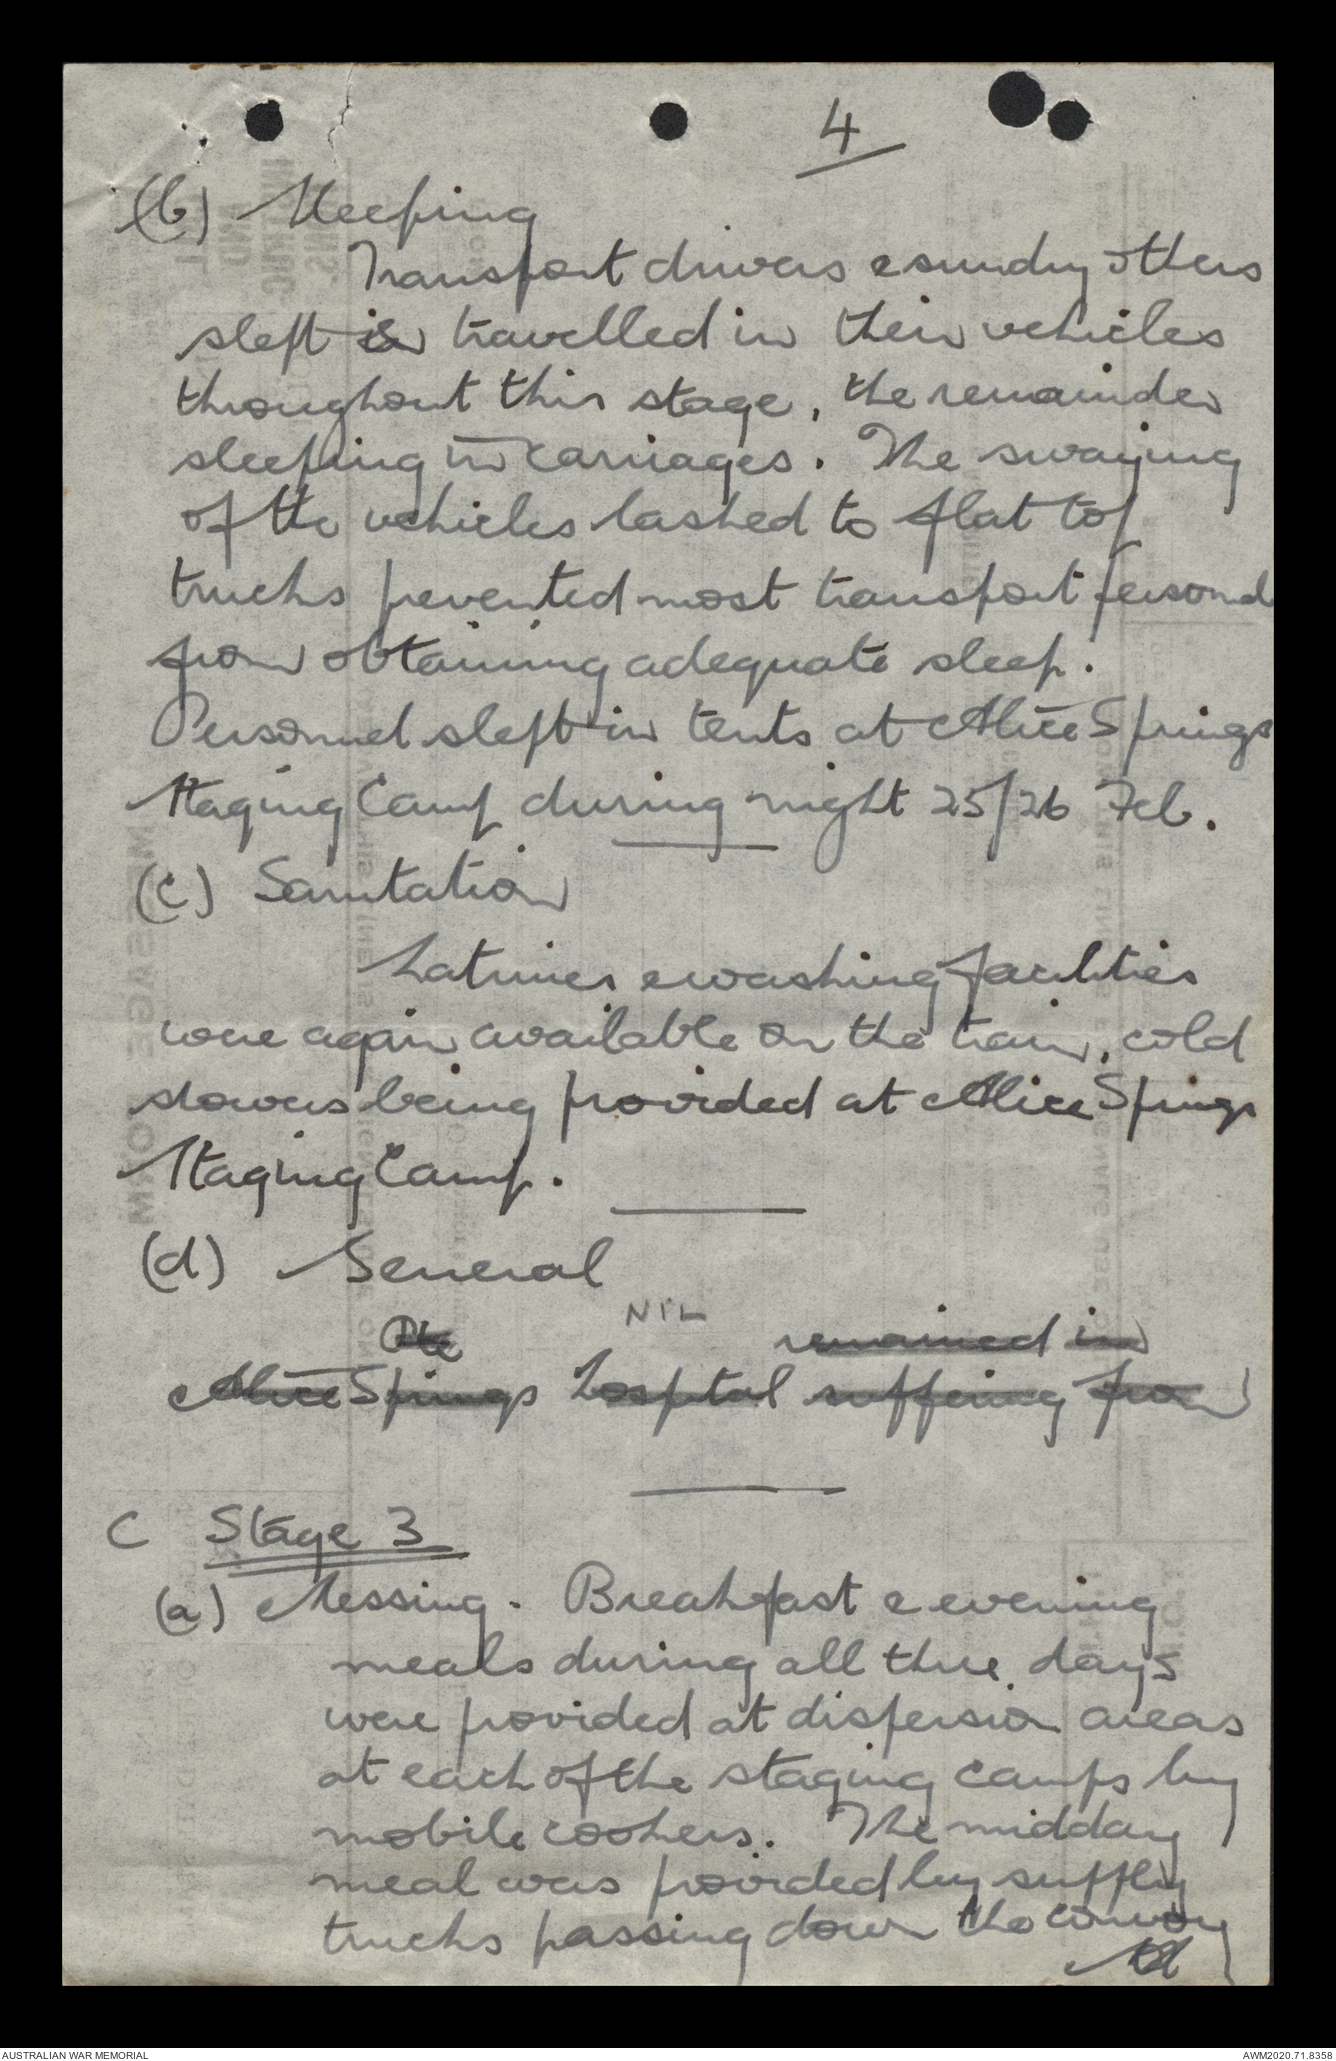 4
(b) Sleeping
Transport drivers & sundry others
slept & travelled in their vehicles
throughout this stage, the remainder
sleeping in carriages. The swaying
of the vehicles lashed to flat top
trucks prevented most transport personnel
from obtaining adequate sleep.
Personnel slept in tents at Alice Springs
Staging Camp during night 25/26 Feb.
(c) Sanitation
Latrines & washing facilities
were again available on the train, cold
showers being provided at Alice Springs
Staging Camp.
(d) General
NIL
Pte remained in
Alice Springs hospital suffering from
C Stage 3
(a) Messing. Breakfast & evening
meals during all three days
were provided at dispersion areas
at each of the staging camps by
mobile cookers. The midday
meal was provided by supply
trucks passing down the convoy
AUSTRALIAN WAR MEMORIAL
AWM2020.71.8358